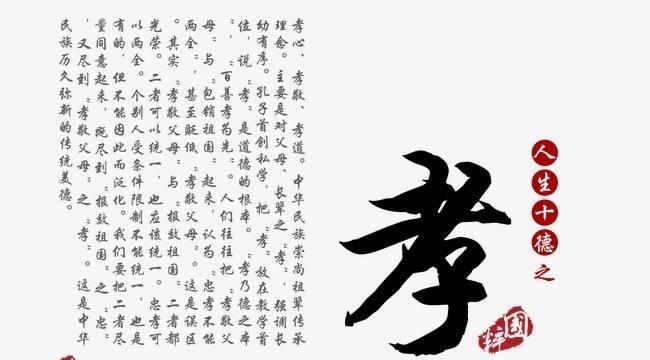 人生十德之
孝
国粹
孝心、孝敬、孝道。中华民族崇尚祖辈传承
理念。主要是对父母、长辈之“孝”，强调长
幼有序。孔子首创私学，把“孝”放在教学首
位，说“孝”是道德的根本。“孝乃德之本
”，“百善孝为先”。人们往往把“孝敬父
母”与“包销祖国”起来，认为“忠孝不能
两全”，甚至贬低“孝敬父母”。这是误区
。其实“孝敬父母”与“报效祖国”二者都
光荣。二者可以统一，也应该统一。忠孝可
以两全。个别人受条件限制不能统一，也是
有的，但不能因此而泛化。我们要把二者尽
量同意起来，既尽到“报效祖国”之“忠”
，又尽到“孝敬父母”之“孝”。这是中华
民族历久弥新的传统美德。